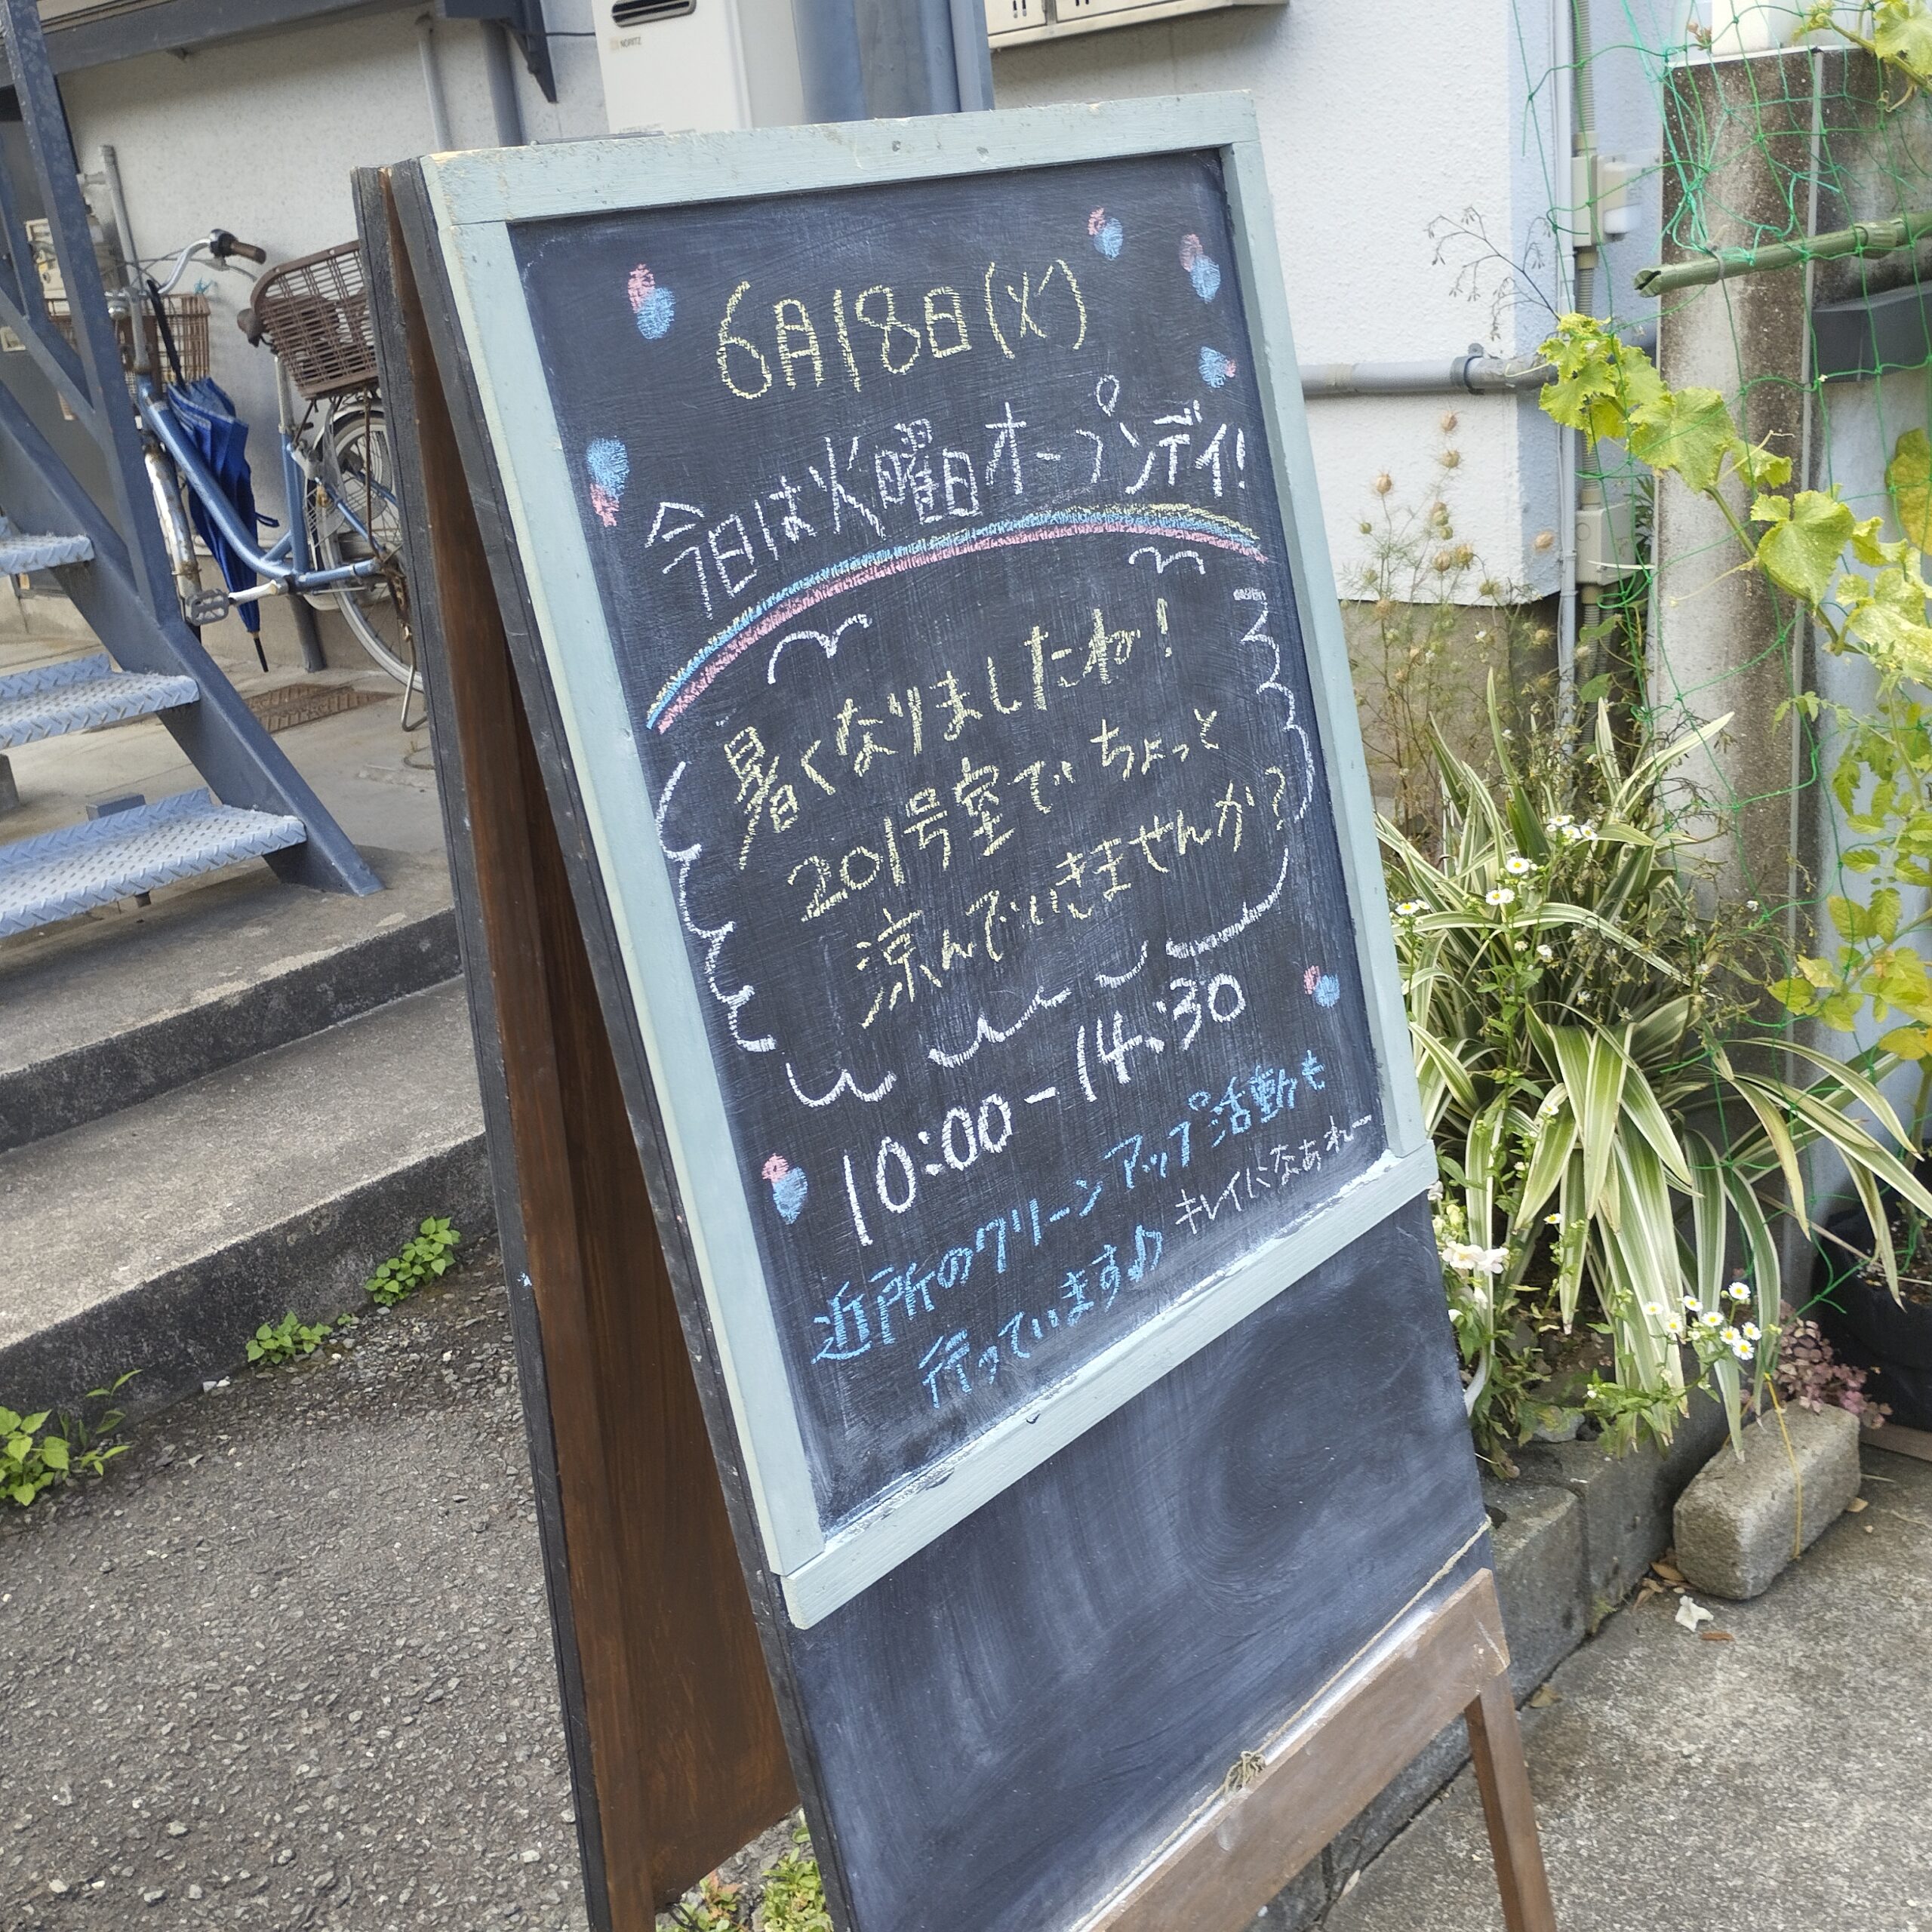 NORITZ
6月18日(火)
今日は火曜日オープンデイ!
暑くなりましたね!
201号室でちょっと
涼んでいきませんか?
10:00-14:30
近所のクリーンアップ活動も
行っています♪
キレイになあれー